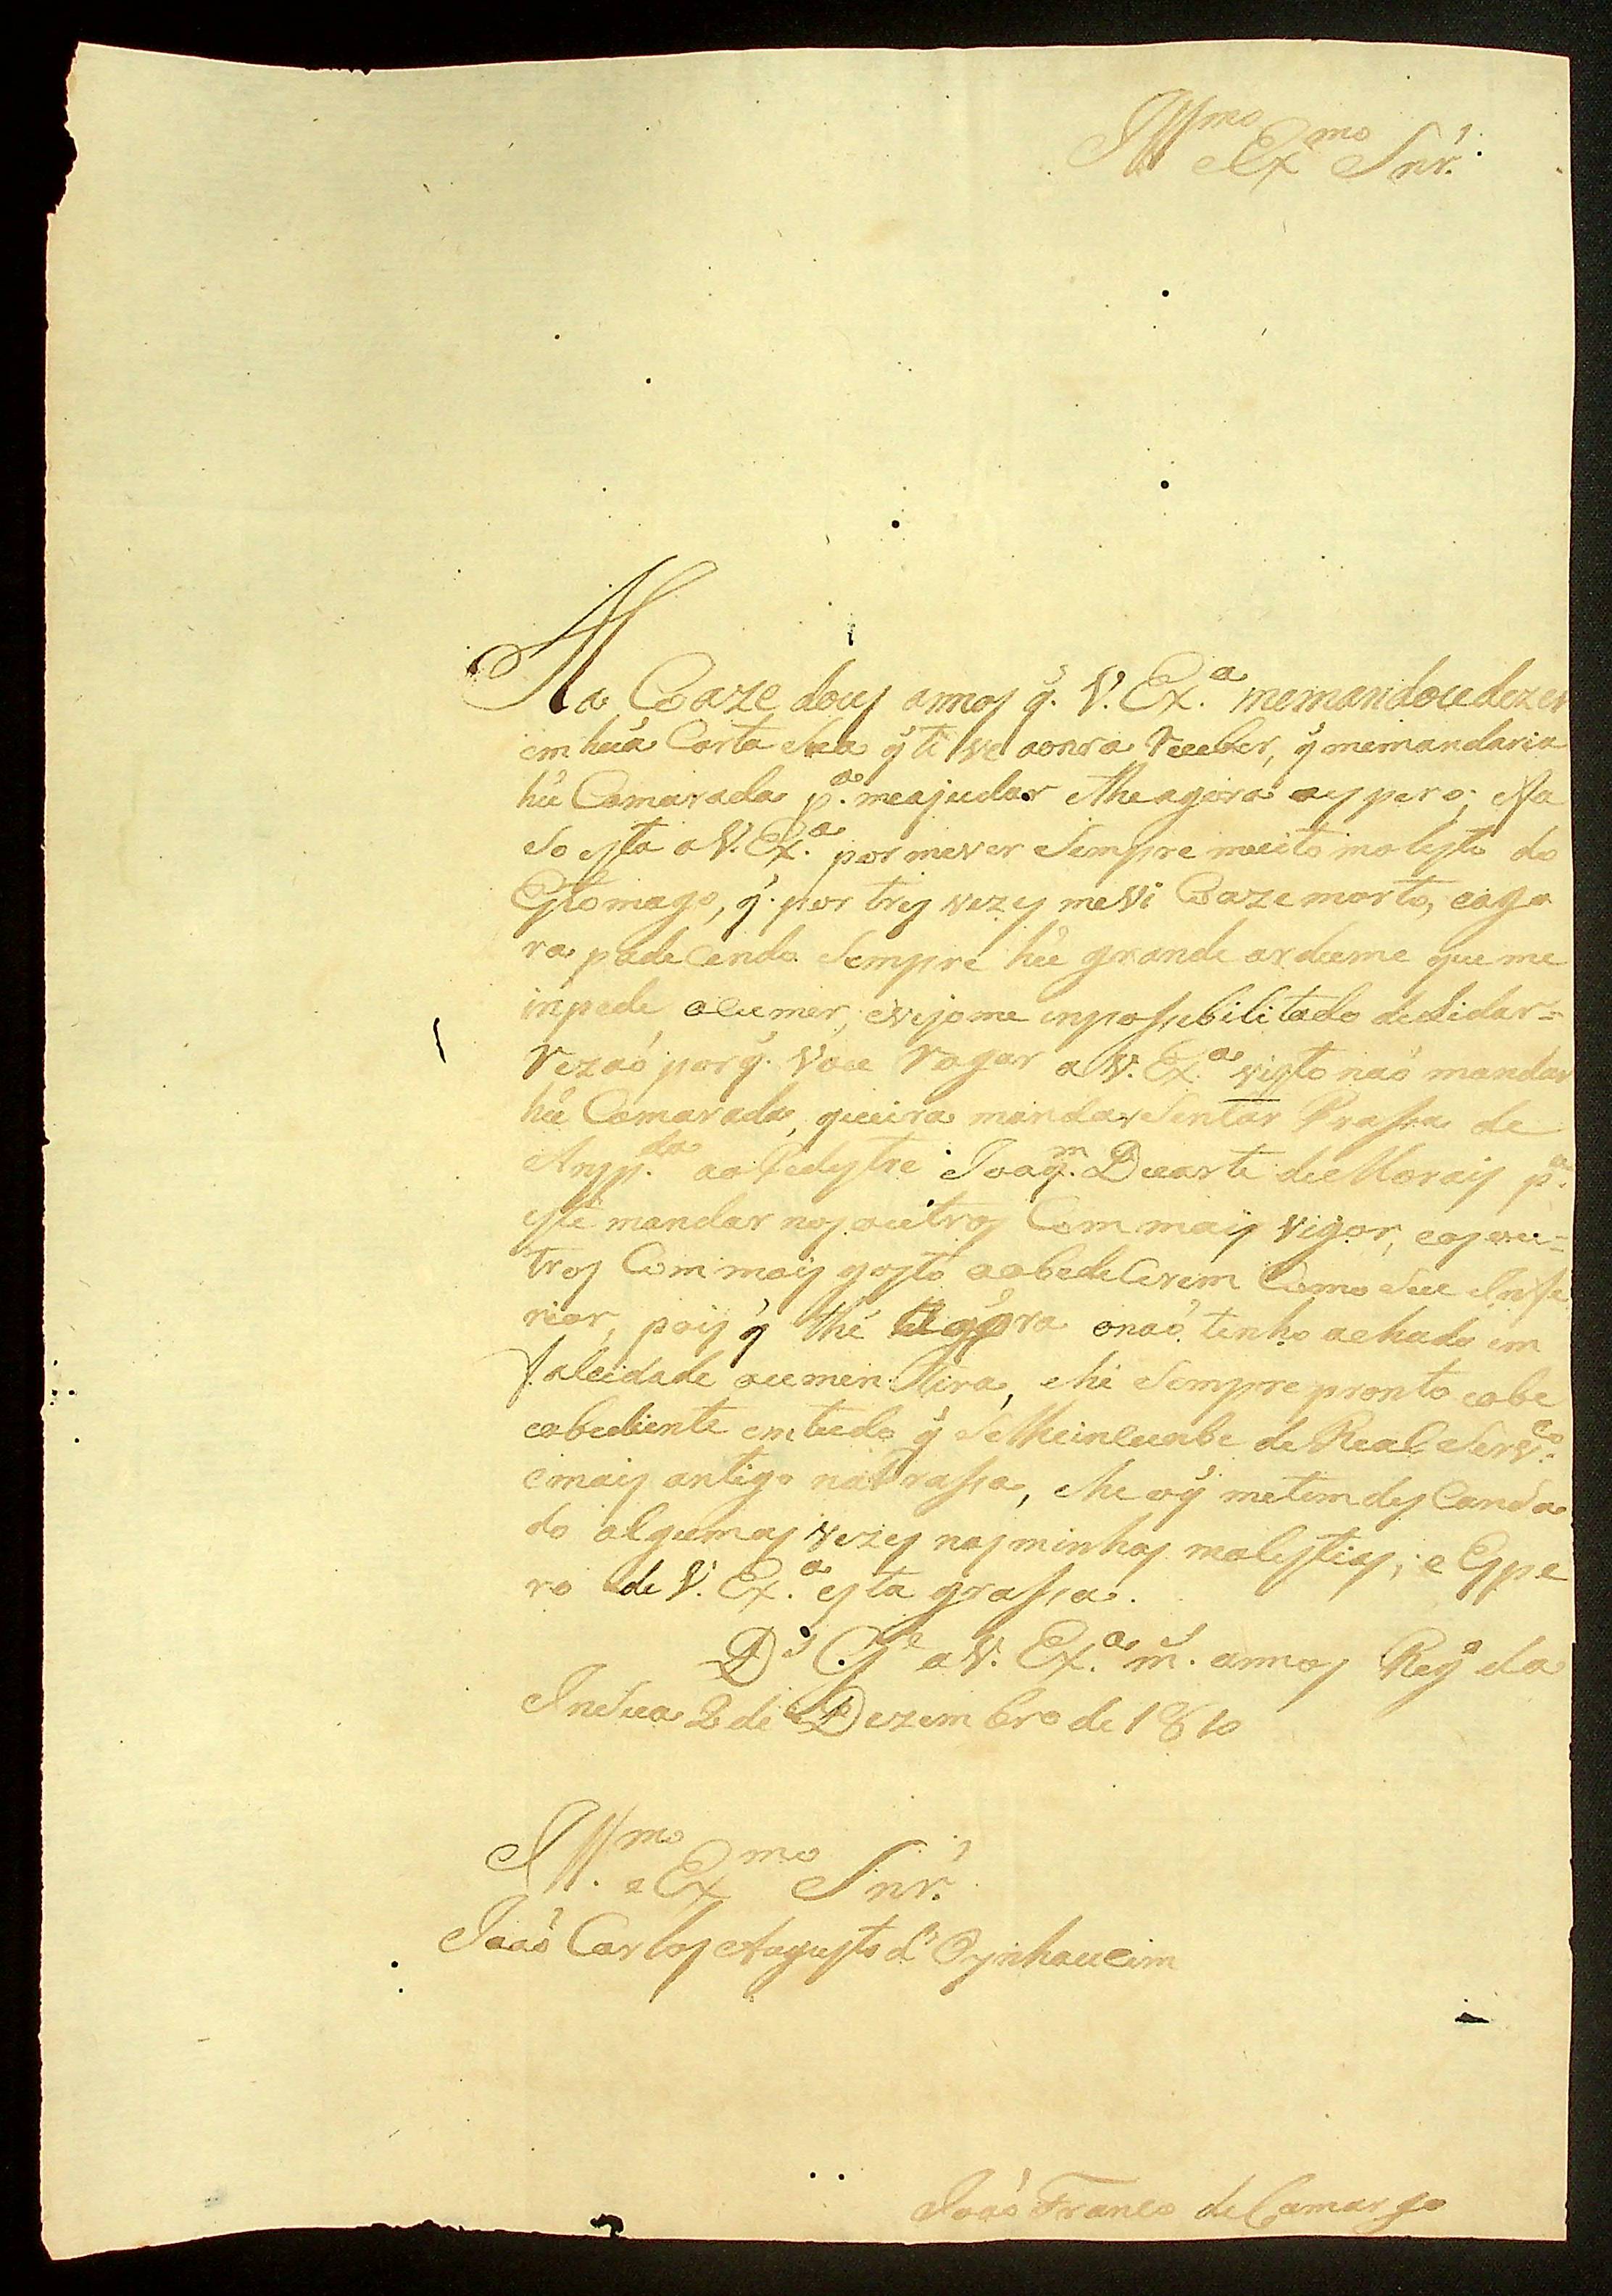 Illmo Exmo Snr.
Ha Coaze douz annos q̃. V. Ex.a memandou dezer
em hũa Carta Sua q̃ ti ve aonra Receber, q̃ memandaria
hũ Camarada p.a meajudar Atheagora aespero; efa
so esta aV. Ex.a por mever Sempre muito molesto do
Estomago, q̃. por tres vezes me vi Coaze morto, eago
ra padeCendo Sempre hũ grande ardume que me
inpede acumer, evejome inpossebilitado deLidar=
Rezaõ porq̃. Vou Rogar a V. Ex.a visto naõ mandar
hũ Camarada, queira mandar Sentar Prassa de
Ansp.da ao Pedestre Joaq.m Duarte de Morais p.a
este mandar nos outros Com mais vigor, eos ou=
tros Com mais gosto aobedeCerem Como Seu Infe
rior, pois q̃ thé Agora onaõ tenho achado em
falcidade oumen tira, ehé Sempre pronto eobe
eobediente emtudo q̃ Selheincunbe de Real Serv.co
emais antigo naPrassa, ehe oq̃ metem desCansa
do algumas vezes nasminhas molestias; e Espe
ro de V. Ex.a esta grassa.
D.s G.e aV. Ex.a m.s annos Reg.o da
Insua 2 de Dezembro de 1810
Illmo. e Exmo Snr.
Joaõ Carlos Augusto d'Oynhaueim
Joaõ Franco deCamargo